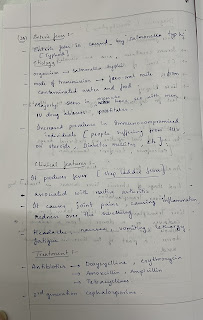 Enteric fever :-
Enteric fever is caused by Salmonella typhi
(Typhoid)
Etiology
organism → Salmonella typhi
mode of transmission → faeco oral route from
contaminated water and food
Majorly seen in
IV drug abusers, prostitutes
Increased prevalence in Immunocompromised
individuals (people suffering from
on steroids, Diabetes mellitus,
Clinical features :-
It produces fever (step ladder fever)
associated with reactive arthritis
It causes joint pain, causing inflammation
redness over the swelling
Headache, nausea, vomiting, lethargy
fatigue
Treatment :-
Antibiotics → Doxycycline, erythromycin
→ Amoxicillin, Ampicillin
→ Tetracycline
3rd generation cephalosporins